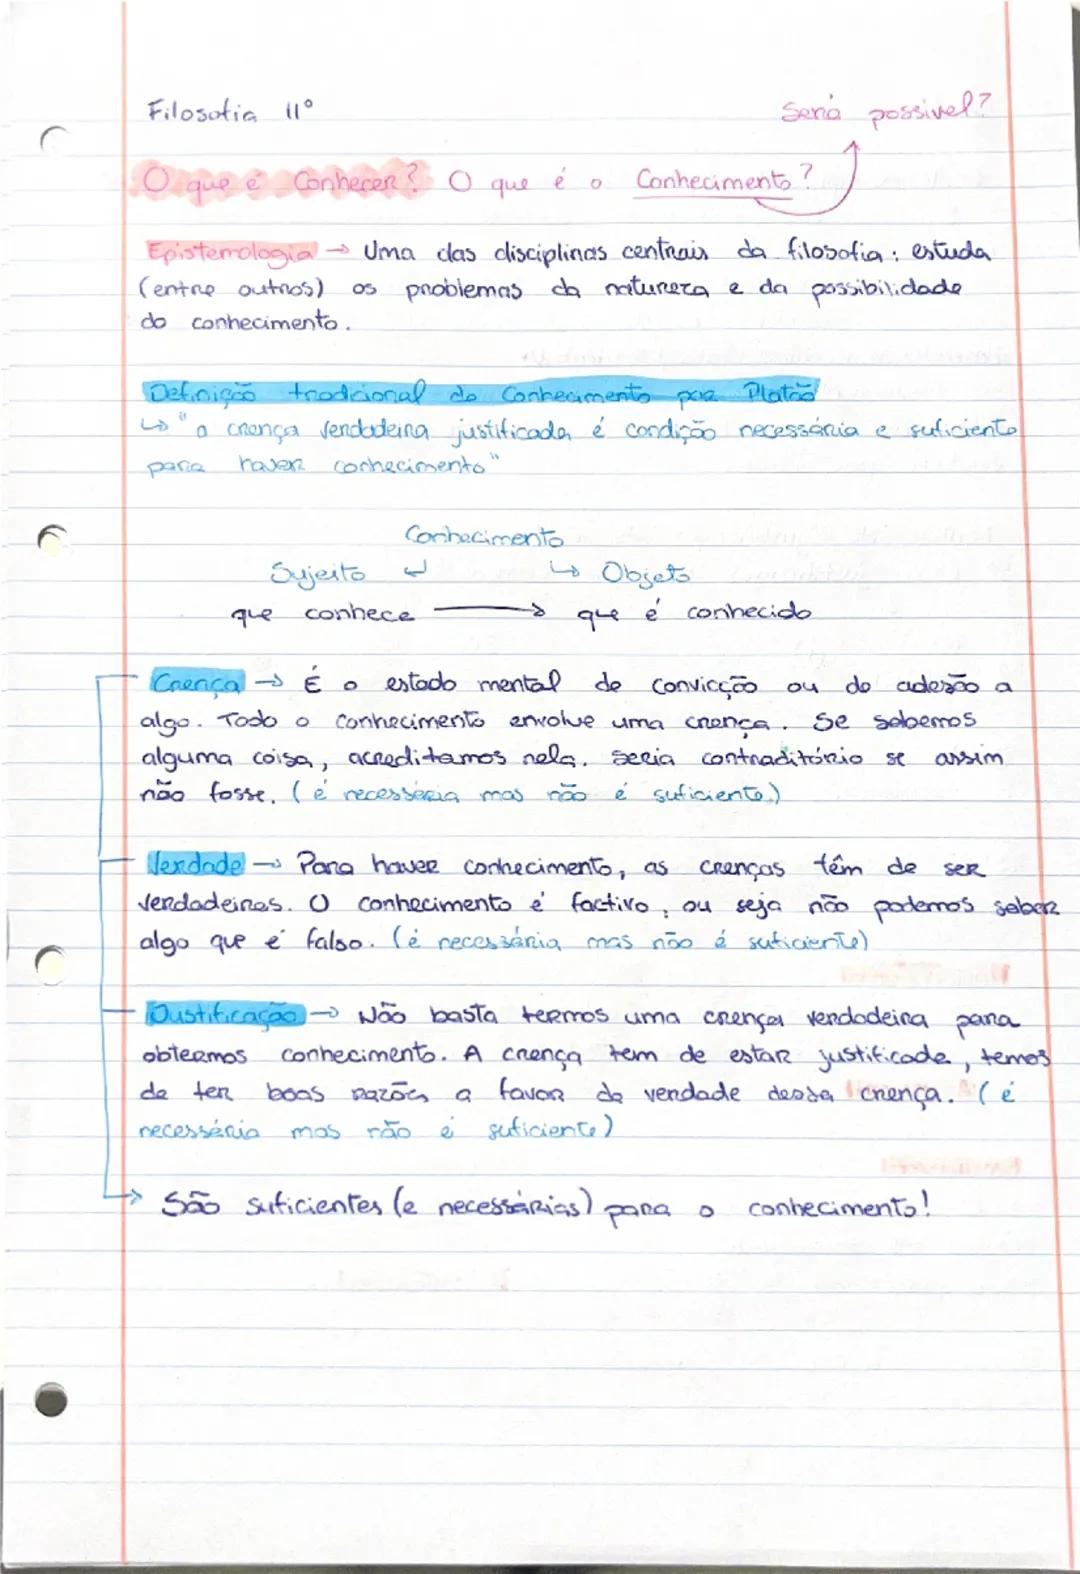 Filosofia 11º
Será possivel?
O que é Conhecer? O que é o Conhecimento?
Epistemologia → Uma das disciplinas centrais da filosofia; estuda
(entre outros) os problemas da natureza e da possibilidade
do conhecimento.
Definição tradicional do Conhecimento por Platão
↳ "a crença verdadeira justificada é condição necessária e suficiente
para haver conhecimento"
Conhecimento
Sujeito ↲ ↳ Objeto
que conhece → que é conhecido
Crença → É o estado mental de convicção ou de adesão a
algo. Todo o conhecimento envolve uma crença. Se sabemos
alguma coisa, acreditamos nela. Seria contraditório se assim
não fosse. (é necessária mas não é suficiente)
Verdade → Para haver conhecimento, as crenças têm de ser
verdadeiras. O conhecimento é factivo, ou seja não podemos saber
algo que é falso. (é necessária mas não é suficiente)
Justificação → Não basta termos uma crença verdadeira para
obtermos conhecimento. A crença tem de estar justificada, temos
de ter boas razões a favor da verdade dessa crença. (é
necessária mas não é suficiente)
→ São suficientes (e necessárias) para o conhecimento!